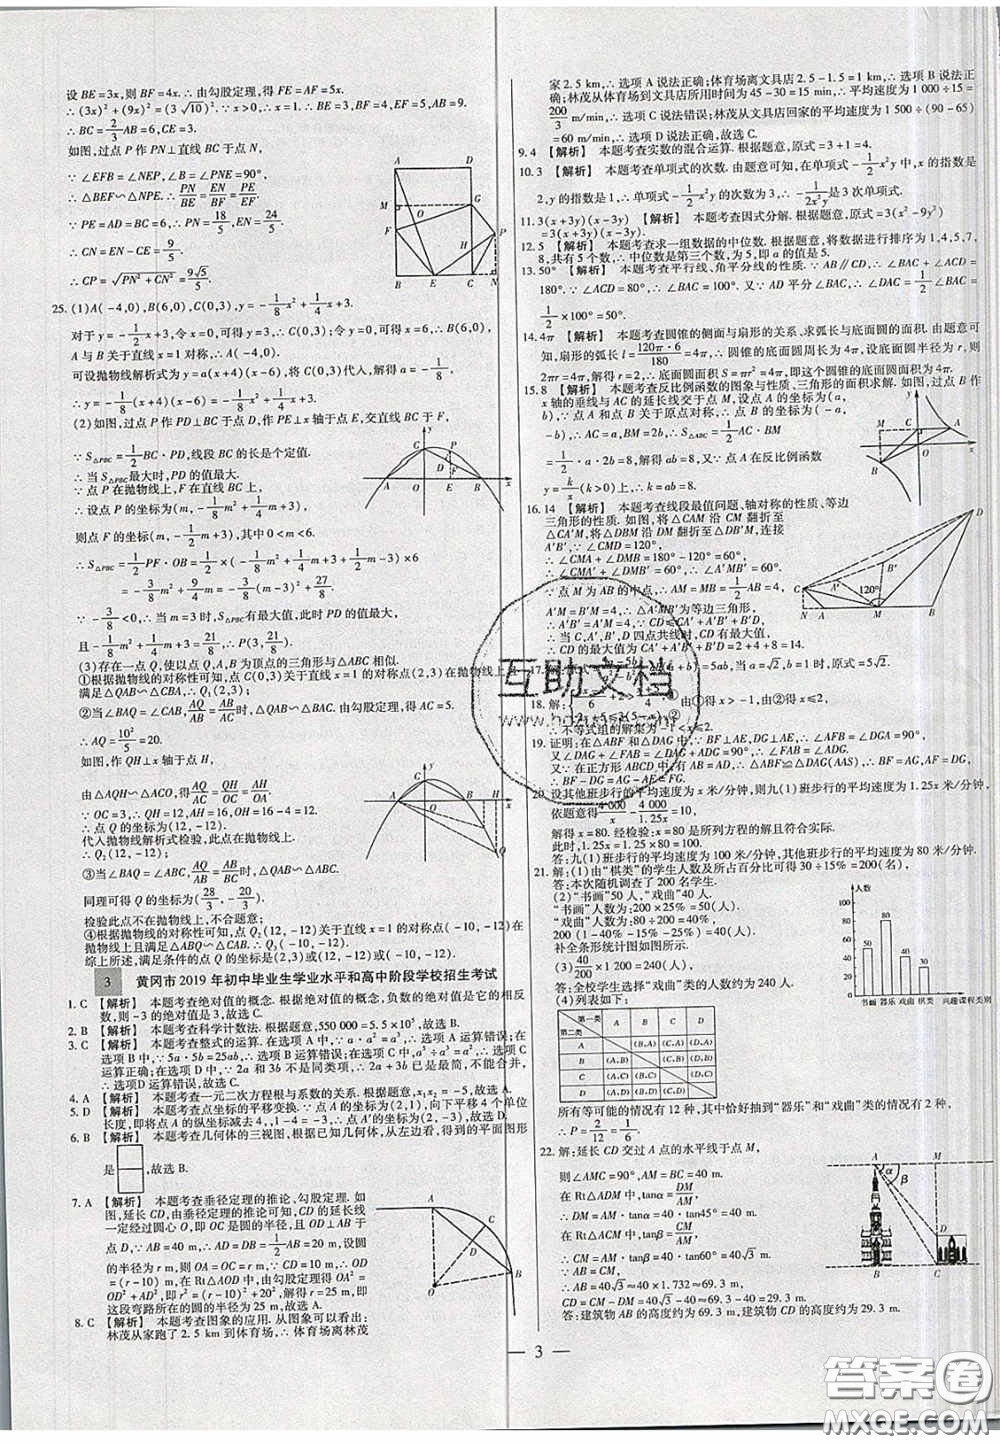 设 BE=3x,则 BF=4x. ∴ 由勾股定理,得 FE=AF=5x.
∴ (3x)²+(9x)²=(3√10)². ∵ x>0,∴ x=1. ∴ BE=3,BF=4,EF=5,AB=9.
∴ BC=2/3 AB=6,CE=3.
如图,过点 P 作 PN⊥直线 BC 于点 N,
∵ ∠EFB=∠NEP,∠FBE=∠ENP=90°,
∴ △BEF∽△NPE. ∴ PN/BE=EN/BF=PE/EF
∵ PE=AD=BC=6,∴ PN=18/5,EN=24/5.
∴ CN=EN-CE=9/5.
∴ CP=√(PN²+CN²)=9√5/5.
25. (1)A(-4,0),B(6,0),C(0,3),y=-1/8x²+1/4x+3.
对于 y=-1/2x+3,令 x=0,可得 y=3,∴ C(0,3);令 y=0,可得 x=6,∴ B(6,0),
A 与 B 关于直线 x=1 对称,∴ A(-4,0).
可设抛物线解析式为 y=a(x+4)(x-6),将 C(0,3)代入,解得 a=-1/8,
∴ y=-1/8(x+4)(x-6)=-1/8x²+1/4x+3.
(2)如图,过点 P 作 PD⊥BC 于点 D,过点 P 作 PE⊥x 轴于点 E,交直线 BC 于点 F,
∵ S△PBC=1/2BC·PD,线段 BC 的长是个定值.
∴ 当 S△PBC最大时,PD 的值最大.
∵ 点 P 在抛物线上,F 在直线 BC 上,
∴ 设点 P 的坐标为(m,-1/8m²+1/4m+3),
则点 F 的坐标(m,-1/2m+3),其中 0<m<6.
∴ S△PBC=1/2PF·OB=1/2×(-1/8m²+1/4m+3+1/2m-3)×6
=-3/8m²+9/4m=-3/8(m-3)²+27/8.
∵ -3/8<0,∴ 当 m=3 时,S△PBC有最大值,此时 PD 的值最大,
且-1/8m²+1/4m+3=21/8,∴ P(3,21/8).
(3)存在一点 Q,使以点 Q,A,B 为顶点的三角形与△ABC 相似.
①根据抛物线的对称性可知,点 C(0,3)关于直线 x=1 的对称点(2,3)在抛物线上且
满足△QAB∽△CBA,∴ Q₁(2,3);
②当∠BAQ=∠CAB,AQ/AB=AB/AC时,△QAB∽△BAC. 由勾股定理,得 AC=5,
∴ AQ=10²/5=20.
如图,作 QH⊥x 轴于点 H,
由△AQH∽△ACO,得AQ/AC=QH/CO=AH/AO.
∵ OC=3,∴ QH=12,AH=16,OH=16-4=12.
∴ 点 Q 的坐标为(12,-12).
代入抛物线解析式检验,此点在抛物线上.
∴ Q₂(12,-12);
③当∠BAQ=∠CBA,AQ/AB=AB/BC时,△QAB∽△ABC,
同理可得 Q 的坐标为(28/3,-20/3),
检验此点不在抛物线上,不合题意;
④根据抛物线的对称性可知,点(12,-12)关于直线 x=1 的对称点(-10,-12)在
抛物线上且满足△QAB∽△ABC,∴ Q₃(-10,-12).
综上所述,满足条件的点 Q 的坐标为(2,3)或(12,-12)或(-10,-12).
3 黄冈市 2019 年初中毕业生学业水平和高中阶段学校招生考试
1. C 【解析】 本题考查绝对值的概念. 根据绝对值的概念,负数的绝对值是它的相反
数,则-3 的绝对值是 3,故选 C.
2. B 【解析】 本题考查科学计数法. 根据题意,550 000=5.5×10⁵,故选 B.
3. C 【解析】 本题考查整式的运算. 在选项 A 中,∵ a·a²=a³,∴ 选项 A 运算错误;在
选项 B 中,∵ 5a·5b=25ab,∴ 选项 B 运算错误;在选项 C 中,a⁵÷a³=a²,∴ 选项 C
运算正确;在选项 D 中,∵ 2a 和 3b 不是同类项,∴ 2a+3b 已是最简,不能合并,∴ 选
项 D 运算错误,故选 C.
4. A 【解析】 本题考查一元二次方程根与系数的关系. 根据题意,x₁x₂=-5,故选 A.
5. D 【解析】 本题考查点坐标的平移变换. ∵ 点 A 的坐标为(2,1),向下平移 4 个单位
长度,∴ 将点 A 的纵坐标减 4,1-4=-3,∴ 点 A′的坐标为(2,-3),故选 D.
6. B 【解析】 本题考查几何体的三视图. 根据已知几何体,从左边看得到的平面图形
是 ,故选 B.
7. A 【解析】 本题考查垂径定理的推论,勾股定理. 如
图,延长 CD,由垂径定理的推论可知,CD 的延长线
一定经过圆心 O,即 OC 是圆的半径,且 OD⊥AB 于
点 D,∵ AB=40 m,∴ AD=1/2AB=20(m),设圆
的半径为 r m,则 OA=OC=r m,∵ CD=10 m,∴ OD
=(r-10)m,在 Rt△AOD 中,由勾股定理得 OA²=
OD²+AD²,即 r²=(r-10)²+20²,解得 r=25,即
这段弯路所在的圆的半径为 25 m,故选 A.
8. C 【解析】 本题考查图象的应用. 从图象可以看出:
林茂从家跑了 2.5 km 到体育场,∴ 体育场离林茂
家 2.5 km,∴ 选项 A 说法正确;体育场离文具店 2.5-1.5=1 km,∴ 选项 B 说法正
确;林茂从体育场到文具店所用时间为 45-30=15 min,∴ 平均速度为 1 000÷15=
200/3 m/min,∴ 选项 C 说法错误;林茂从文具店回家的平均速度为 1 500÷(90-65)
=60 m/min,∴ 选项 D 说法正确,故选 C.
9. 4 【解析】 本题考查实数的混合运算. 根据题意,原式=3+1=4.
10. 3 【解析】 本题考查单项式的次数. 由题意可知,在单项式-1/2x²y 中,x 的指数是
2,y 的指数是 1,∴ 单项式-1/2x²y 的次数为 3,∴ -1/2x²y是 3 次单项式.
11. 3(x+3y)(x-3y) 【解析】 本题考查因式分解. 根据题意,原式=3(x²-9y²)
=3(x+3y)(x-3y).
12. 5 【解析】 本题考查求一组数据的中位数. 根据题意,将数据进行排序为 1,4,5,7,
8,共有 5 个数,∴ 中位数是第三个数,为 5,即 a 的值是 5.
13. 50° 【解析】 本题考查平行线、角平分线的性质. ∵ AB∥CD,∴ ∠BAC+∠ACD=
180°,∵ ∠ACD=80°,∴ ∠BAC=100°. 又∵ AD 平分∠BAC,∴ ∠DAC=1/2∠BAC=
1/2×100°=50°.
14. 4π 【解析】 本题考查圆锥的侧面与扇形的关系、求弧长与底面圆的面积. 由题意可
知,扇形的弧长 l=120π·6/180=4π,∴ 圆锥的底面圆周长为 4π,设底面圆半径为 r,则
2πr=4π,解得 r=2,∴ 底面圆面积 S=πr²=4π,即该圆锥的底面圆的面积为 4π.
15. 8 【解析】 本题考查反比例函数的图象与性质,三角形的面积求解. 如图,过点 B 作
x 轴的垂线与 AC 的延长线交于点 M,设点 A 的坐标为(a,
b),∵ 点 A 和点 B 关于原点对称,∴ 点 B 的坐标为(-a,
-b),∴ AC=a,BM=2b,∴ S△ABC=1/2×AC×BM=
1/2·a·2b=8,解得 ab=8. 又∵点 A 在反比例函数
y=k/x(k>0)上,∴ k=ab=8.
16. 14 【解析】 本题考查线段最值问题、轴对称的性质、等边
三角形的性质. 如图,将△CAM 沿 CM 翻折至
△CA′M,将△DBM 沿 DM 翻折至△DB′M,连接
A′B′,∵ ∠CMD=120°,
∴ ∠CMA+∠DMB=180°-120°=60°,
∴ ∠CMA′+∠DMB′=60°,∴ ∠A′MB′=60°.
∵ 点 M 为 AB 的中点,∴ AM=MB=1/2AB=4,
A′M=B′M,∴ △A′MB′为等边三角形,
∴ A′B′=A′M=4,∵ CD≤CA′+A′B′+B′D,
∴ 当 C,A′,B′,D 四点共线时,CD 有最大值,
∴ CD最大=CA′+A′B′+B′D=AC+AM+BD=2+4+8=14.
=5ab,当 a=√2,b=1 时,原式=5√2.
18. 解: 由①得 x>-1,由②得 x≤2,
∴ 不等式组的解集为-1<x≤2.
19. 证明:在△ABF 和△DAG 中,∵ BF⊥AE,DG⊥AE,∴ ∠BFA=∠AGD=90°,
∵ ∠BAD=90°,∴ ∠BAF+∠DAG=90°,又∵ ∠BAF+∠ABF=90°,∴ ∠ABF=∠DAG,
又∵ 在正方形 ABCD 中,有 AB=AD,∴ △ABF≌△DAG(AAS),∴ BF=AG,AF=DG,
∴ BF-DG=AG-AF=FG.
20. 设其他班步行的平均速度为 x 米/分钟,则九(1)班步行的平均速度为 1.25x 米/分钟,
依题意得4 000/x-4 000/1.25x=10,
解得 x=80. 经检验:x=80 是所列方程的解且符合实际.
此时,1.25x=1.25×80=100.
答:九(1)班步行的平均速度为 100 米/分钟,其他班步行的平均速度为 80 米/分钟.
21. 解:(1)由“棋类”的学生人数及所占百分比可得 30÷15%=200(名),
答:本次随机调查了 200 名学生.
(2)“书画”50 人,“戏曲”40 人.
“书画”人数为:200×25%=50(人),
“戏曲”人数为:80÷200=40%,
200×(1-40%-15%-25%)=40(人),
补全条形统计图如图所示.
(3)40/200×1 200=240(人).
答:全校学生选择“戏曲”类的人数约为 240 人.
(4)列表如下:
第一类 第二类 A B C D
A (B,A) (C,A) (D,A)
B (A,B) (C,B) (D,B)
C (A,C) (B,C) (D,C)
D (A,D) (B,D) (C,D)
所有等可能的情况有 12 种,其中恰好抽到“器乐”和“戏曲”类的情况有 2 种,
∴ P=2/12=1/6.
22. 解:延长 CD 交过 A 点的水平线于点 M,
则∠AMC=90°,AM=BC=40 m.
在 Rt△ADM 中,tanα=DM/AM,
∴ DM=AM·tanα=40·tan45°=40 m.
在 Rt△ACM 中,tanβ=CM/AM,
∴ CM=AM·tanβ=40·tan60°=40√3 m,
∴ AB=CM=40√3≈40×1.732≈69.3(m).
CD=CM-DM=40√3-40≈29.3(m).
答:建筑物 AB 的高度约为 69.3 m,建筑物 CD 的高度约为 29.3 m.
人数
100
80
60
40
20
50 80 40 30
书画 器乐 戏曲 棋类 兴趣课程类别
— 3 —
互助文档
答案圈
MXQE.COM